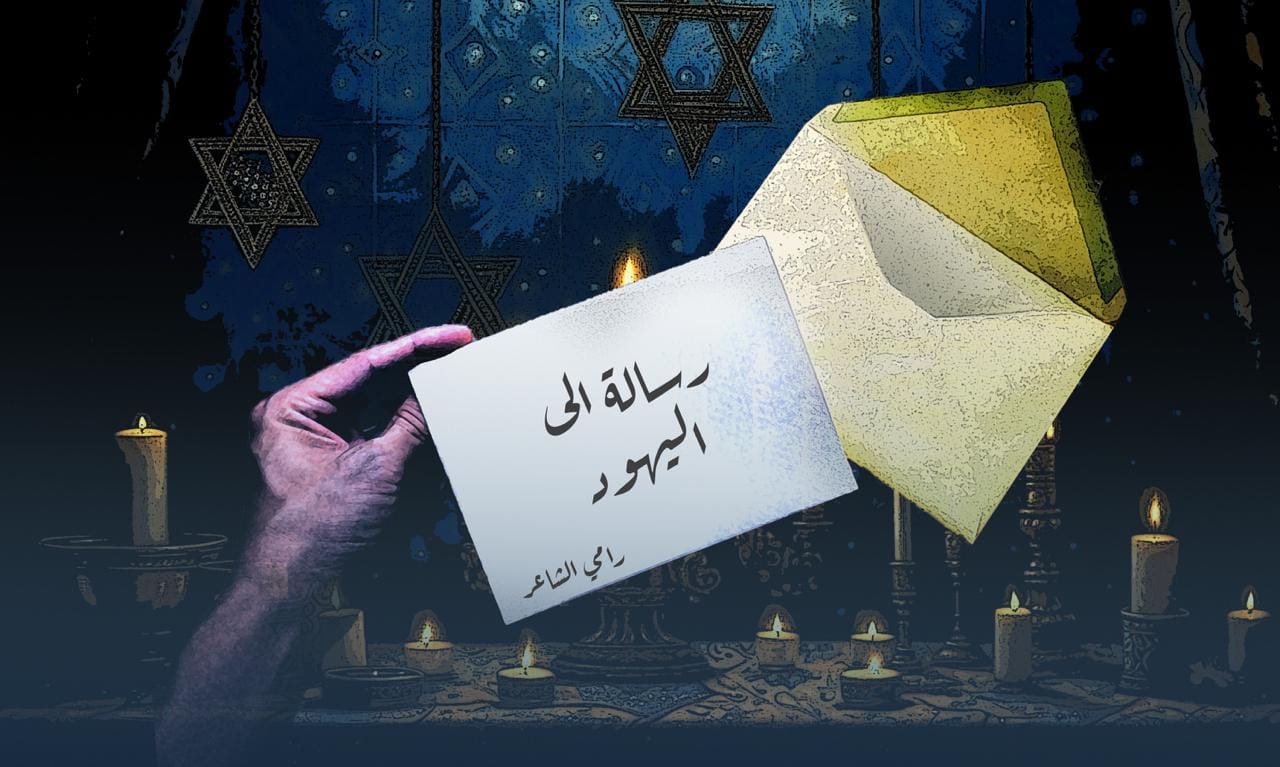 رسالة الى
اليهود
رامي الشاعر